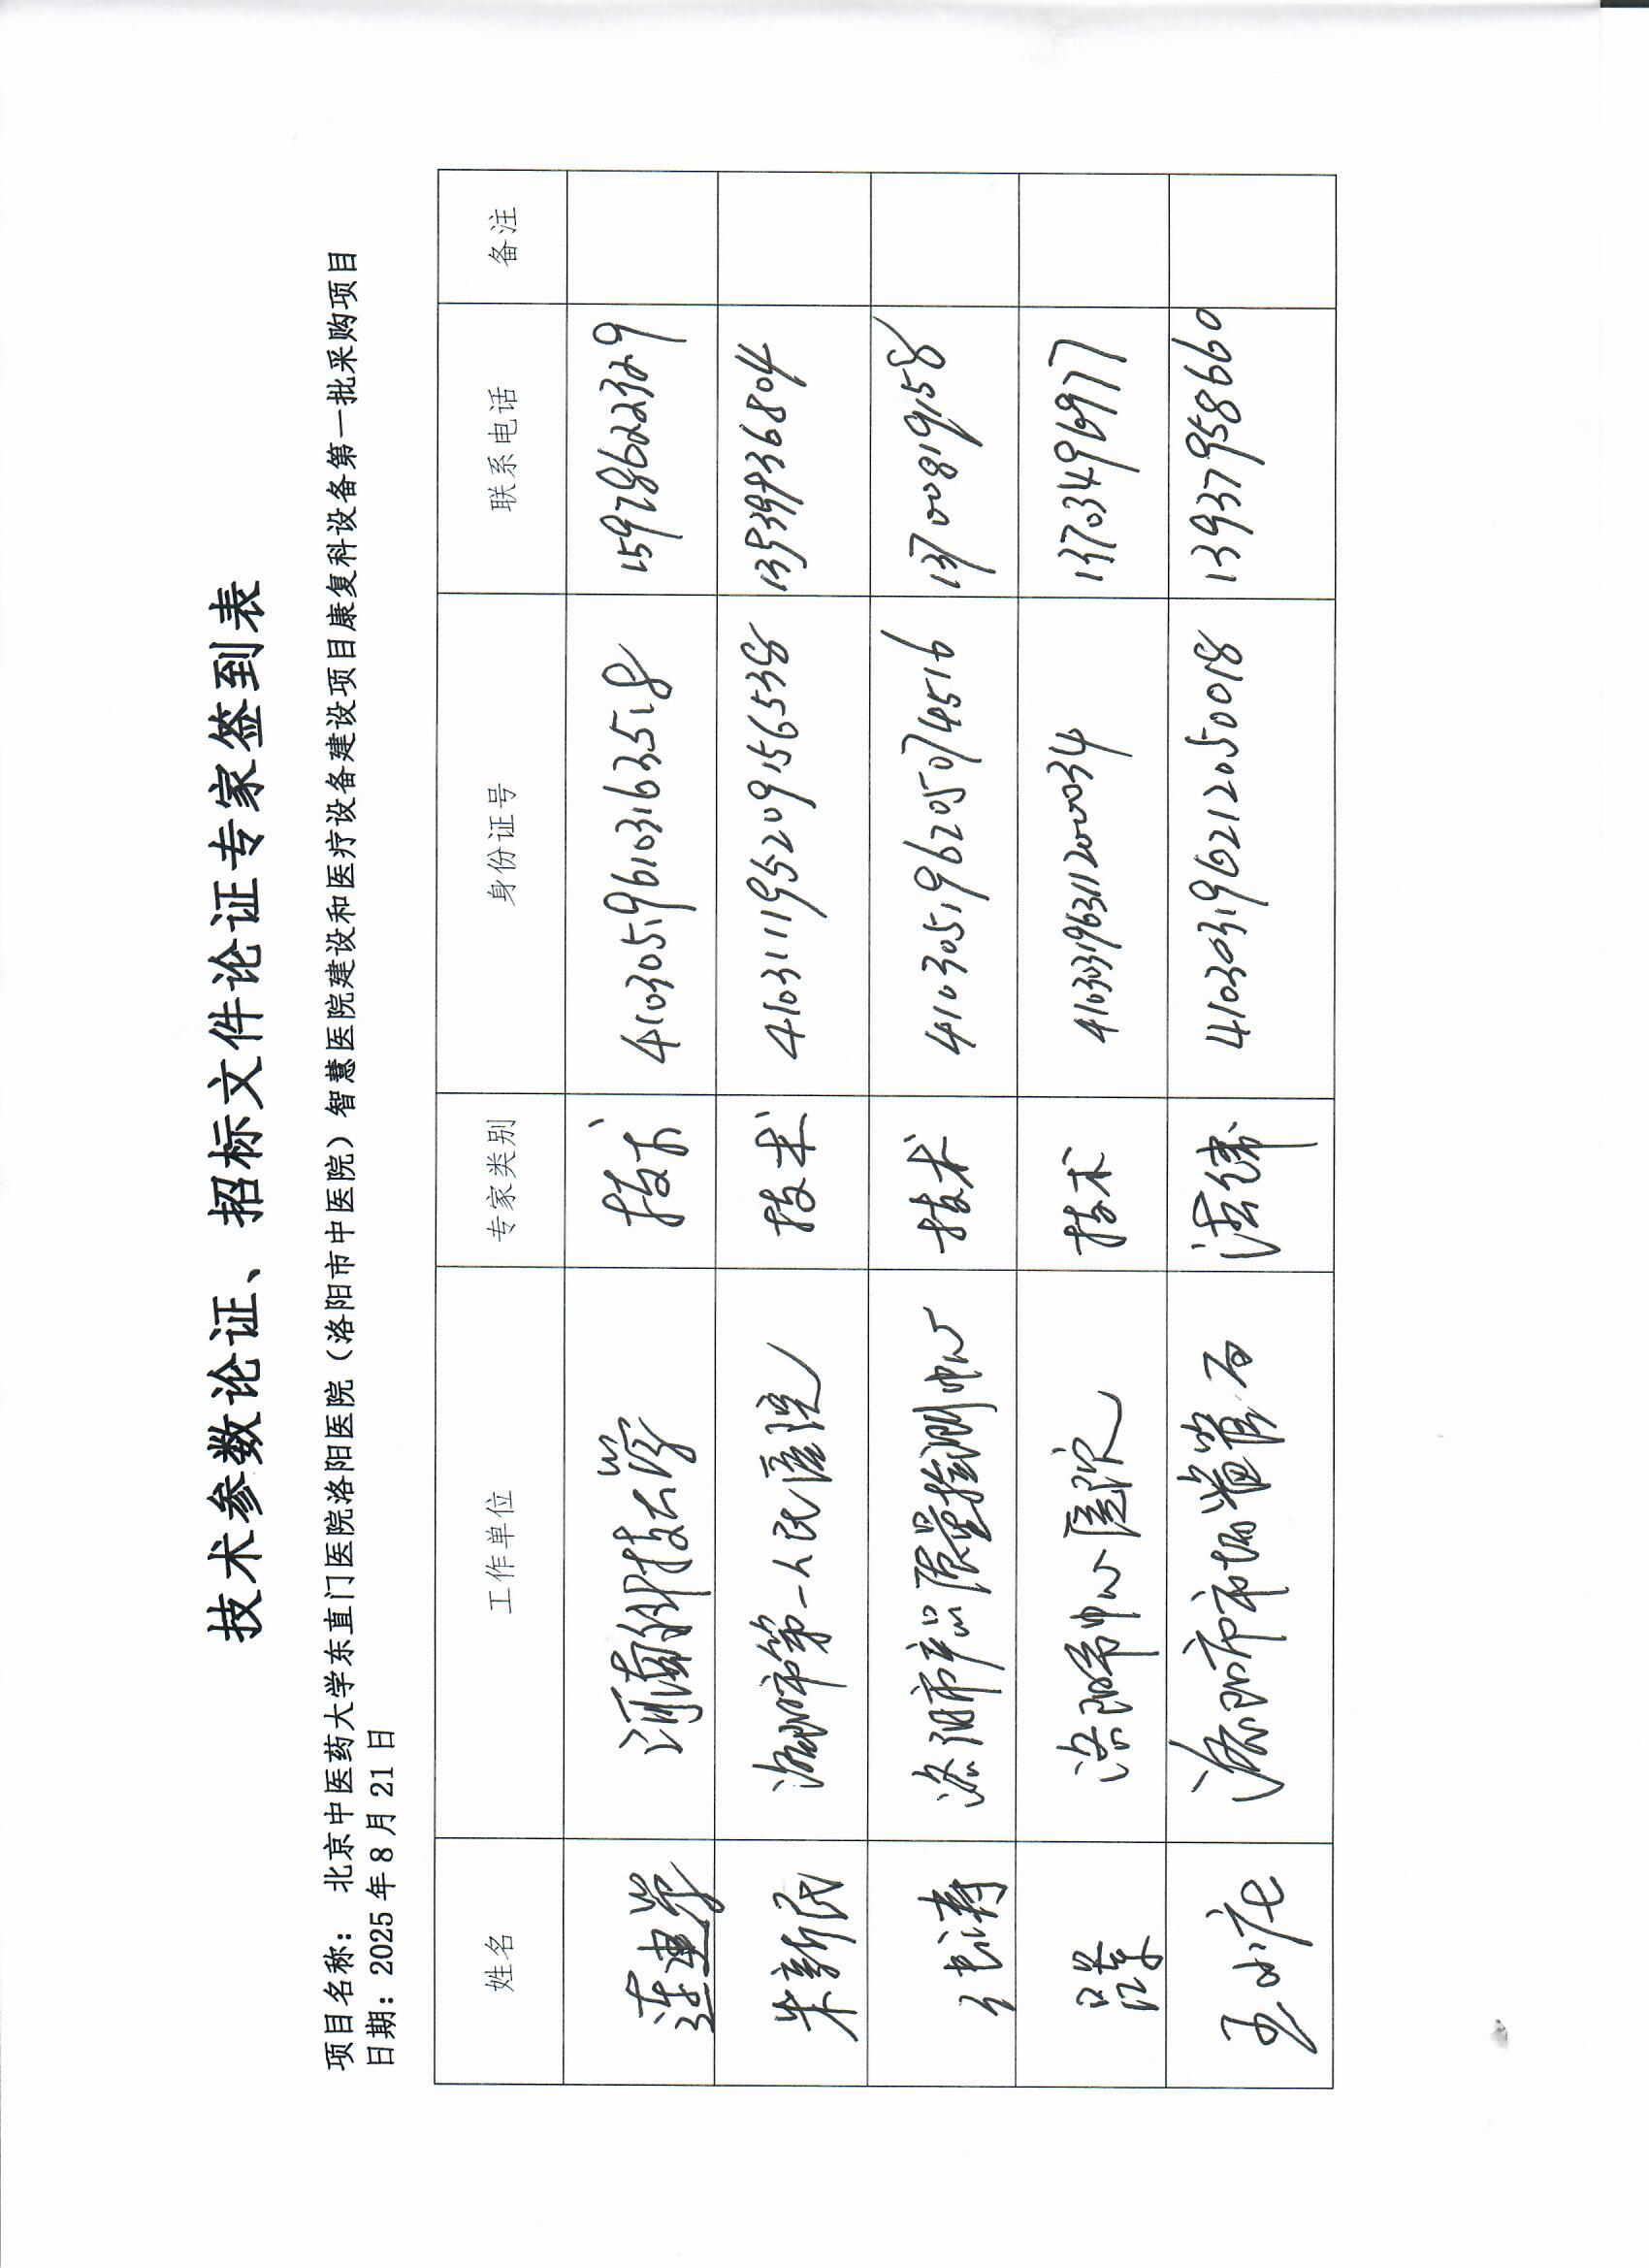 技术参数论证、招标文件论证专家签到表
项目名称： 北京中医药大学东直门医院洛阳医院（洛阳市中医院）智慧医院建设和医疗设备建设项目康复科设备第一批采购项目
日期：2025 年 8 月 21 日
姓名 工作单位 专家类别 身份证号 联系电话 备注
连惠学 河南科技大学 技术 15978622329
朱新民 洛阳市第一人民医院 技术
洛阳市产品质量检测中心 技术 410305196205074516 13700819158
洛阳市中心医院 技术 410303196311200034 13703496977
洛阳市市场监管局 法律 410303196212050018 13937958660